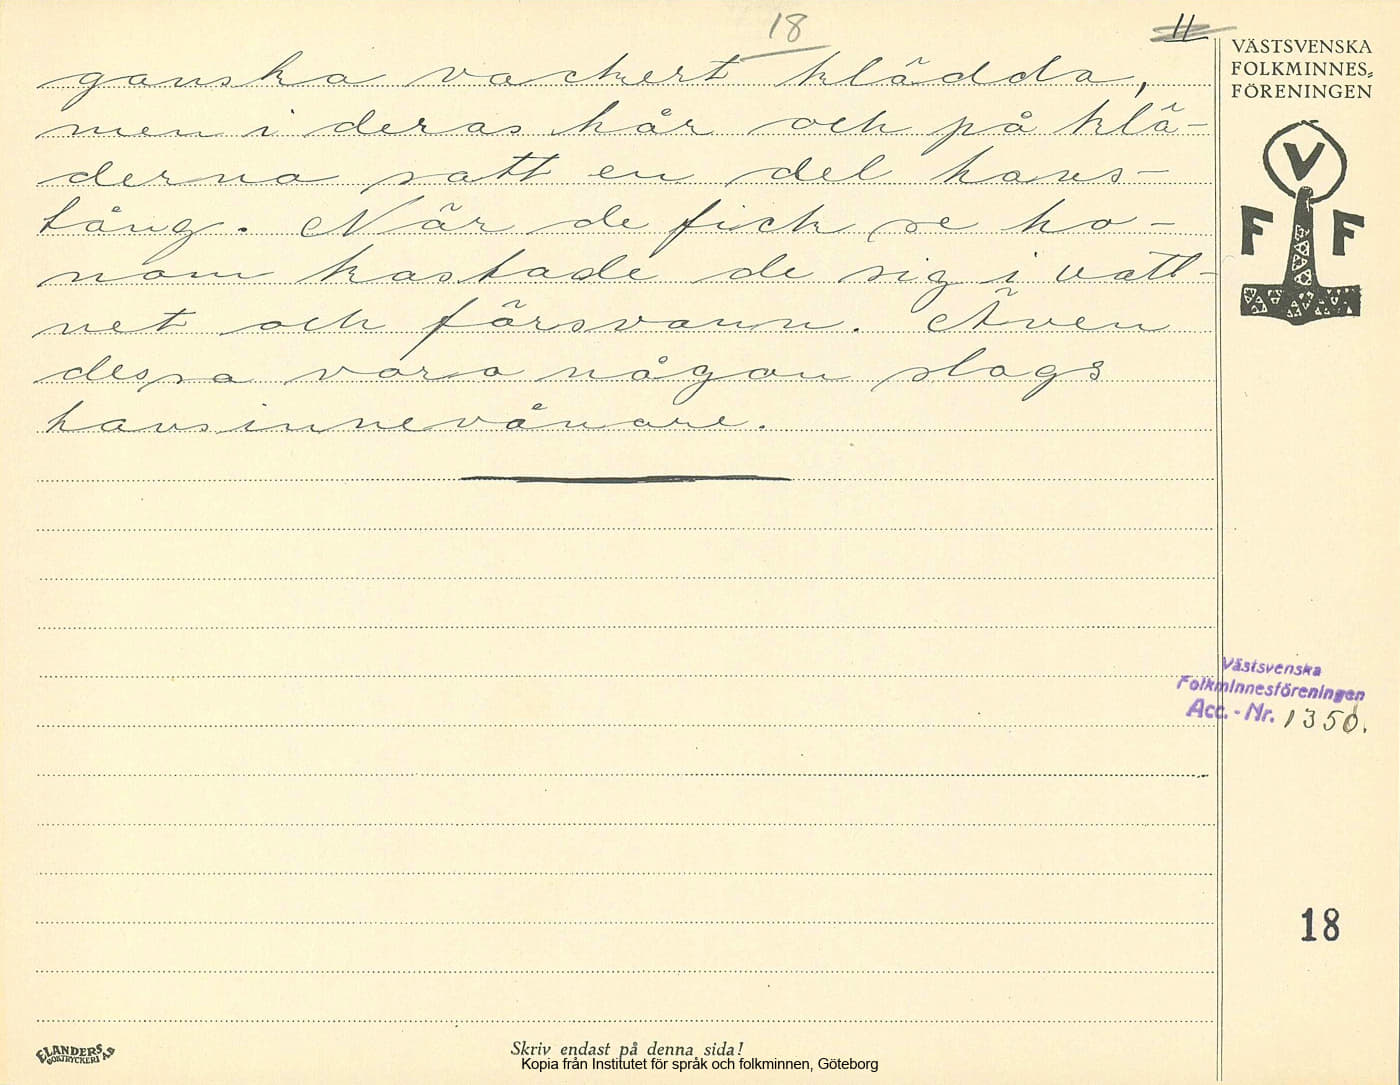 18
11
VÄSTSVENSKA
FOLKMINNES-
FÖRENINGEN
V
F F
ganska vackert klädda,
men i deras hår och på klä-
derna satt en del havs-
tång. När de fick se ho-
nom kastade de sig i vatt-
net och försvann. Även
dessa voro någon slags
havsinnevånare.
Västsvenska
Folkminnesföreningen
Acc.-Nr. 1350.
18
ELANDERS
BOKTRYCKERI AB
Skriv endast på denna sida!
Kopia från Institutet för språk och folkminnen, Göteborg